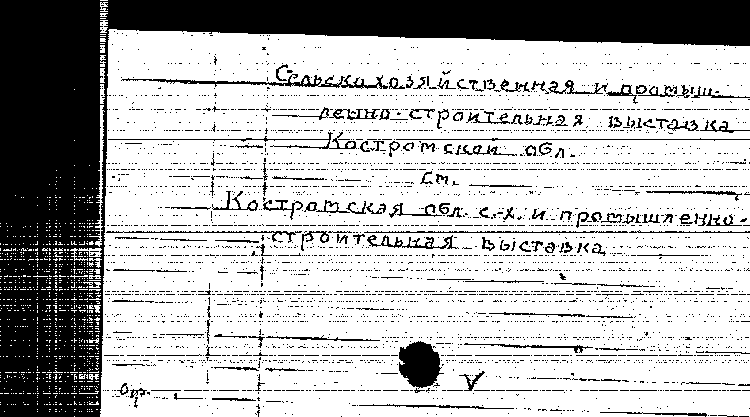 Сельскохозяйственная и промыш-
ленно-строительная выставка
Костромской обл.
см.
Костромская обл. с.-х. и промышленно-
строительная выставка